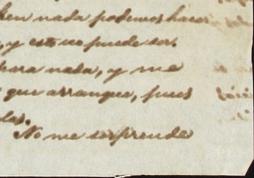 nada podemos hacer
, y esto no puede ser.
para nada, y me
que arranque, pues
No me sorprende